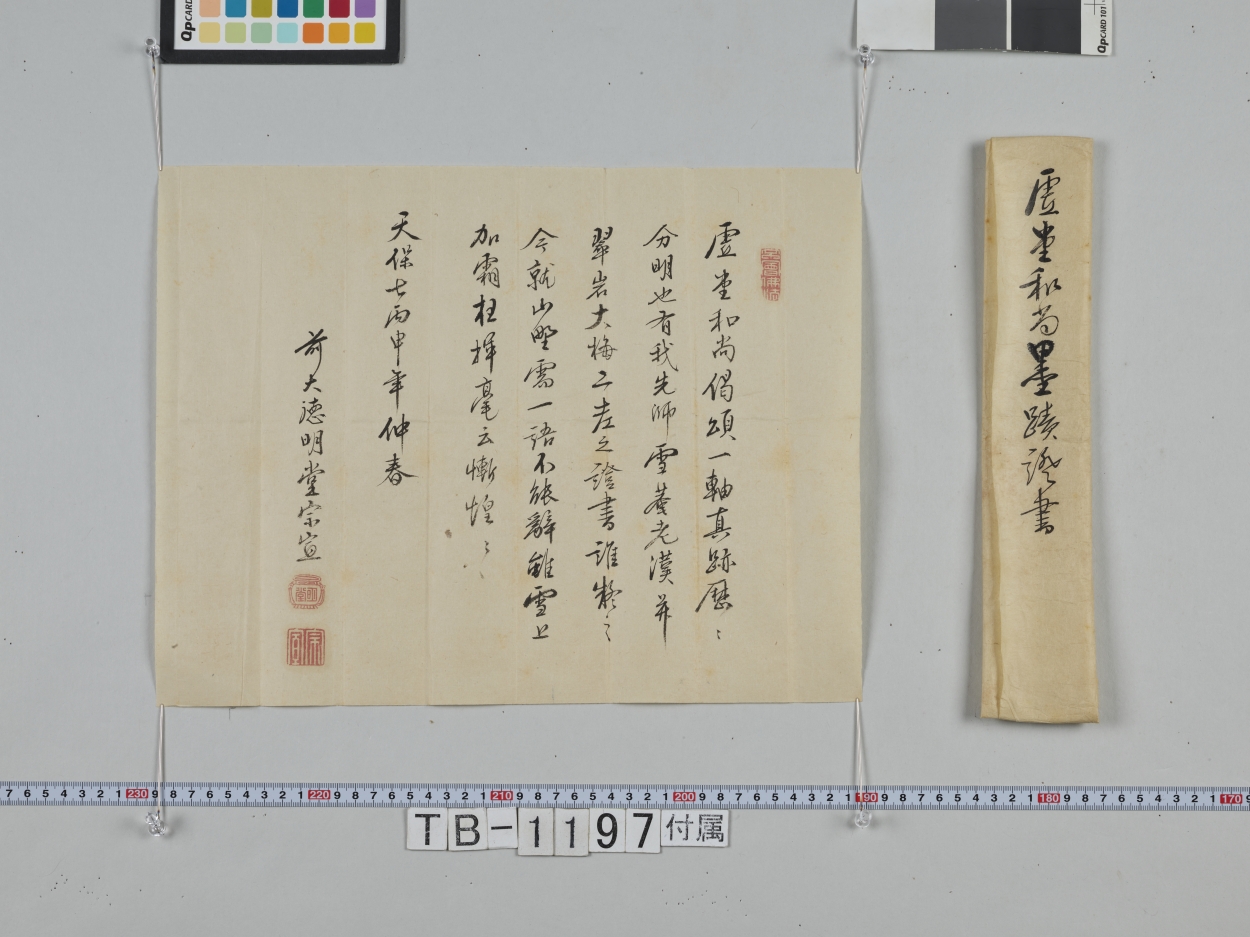 虚堂和尚墨蹟證書
虚堂和尚偈頌一軸真跡歴〻
分明也有我先師雪菴老漢并
翠岩大梅二老之證書誰擬之
今就山野需一語不能辭雖雪上
加霜枉揮毫云慚惶〻
天保七丙申年仲春
前大德明堂宗宣
TB-1197付属
QpCARD 101
7 6 5 4 3 2 1 230 9 8 7 6 5 4 3 2 1 220 9 8 7 6 5 4 3 2 1 210 9 8 7 6 5 4 3 2 1 200 9 8 7 6 5 4 3 2 1 190 9 8 7 6 5 4 3 2 1 180 9 8 7 6 5 4 3 2 1 170 9